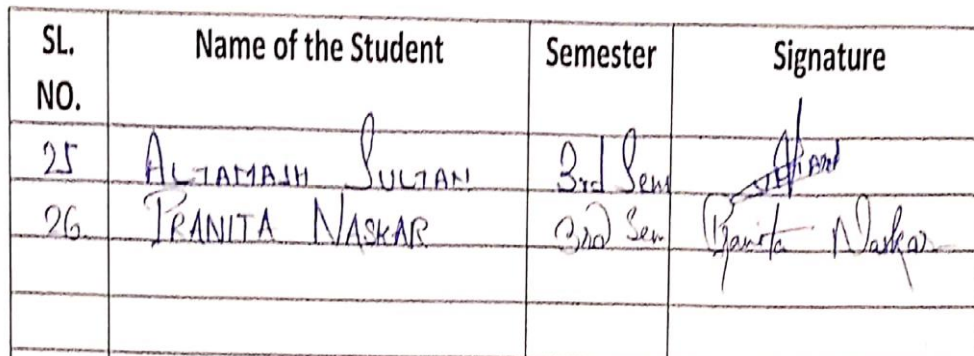 SL. NO. Name of the Student Semester Signature
25 ALTAMASH SULTAN 3rd Sem
26. PRANITA NASKAR 3rd Sem Pranita Naskar